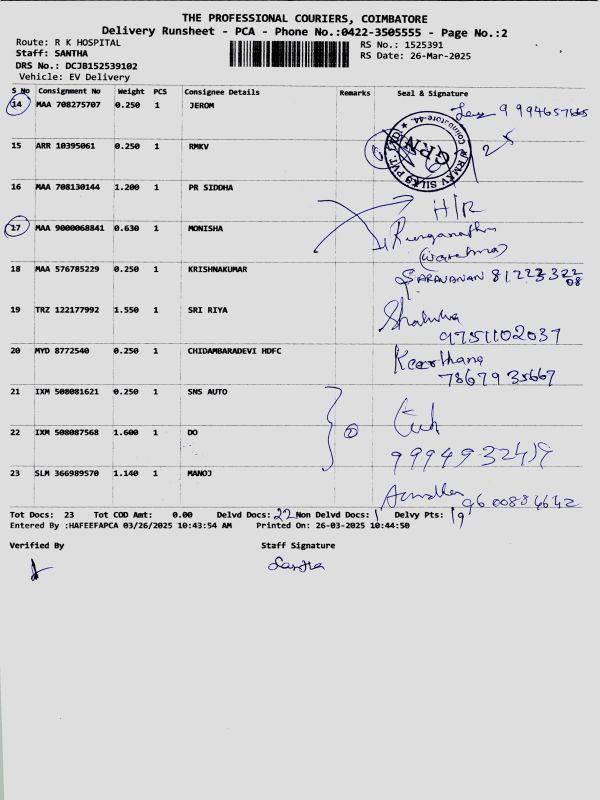 THE PROFESSIONAL COURIERS, COIMBATORE
Delivery Runsheet - PCA - Phone No.:0422-3505555 - Page No.:2
Route: R K HOSPITAL
Staff: SANTHA
DRS No.: DCJB152539102
Vehicle: EV Delivery
RS No.: 1525391
RS Date: 26-Mar-2025
S No Consignment No Weight PCS Consignee Details Remarks Seal & Signature
14 MAA 708275707 0.250 1 JEROM 9994657665
15 ARR 10395061 0.250 1 RMKV
RMKV SILKS PVT. Coimbatore-44. GRN
16 MAA 708130144 1.200 1 PR SIDDHA H/R
17 MAA 9000068841 0.630 1 MONISHA Runganathn
18 MAA 576785229 0.250 1 KRISHNAKUMAR SARAVANAN
19 TRZ 122177992 1.550 1 SRI RIYA
9751102037
20 MYD 8772540 0.250 1 CHIDAMBARADEVI HDFC Keerthana
7867935667
21 IXM 508081621 0.250 1 SNS AUTO
22 IXM 508087568 1.600 1 DO 2
9994932419
23 SLM 366989570 1.140 1 MANOJ
9600884642
Tot Docs: 23 Tot COD Amt: 0.00 Delvd Docs: 22 Non Delvd Docs: 1 Delvy Pts: 19
Entered By :HAFEEFAPCA 03/26/2025 10:43:54 AM Printed On: 26-03-2025 10:44:50
Verified By Staff Signature
Santha